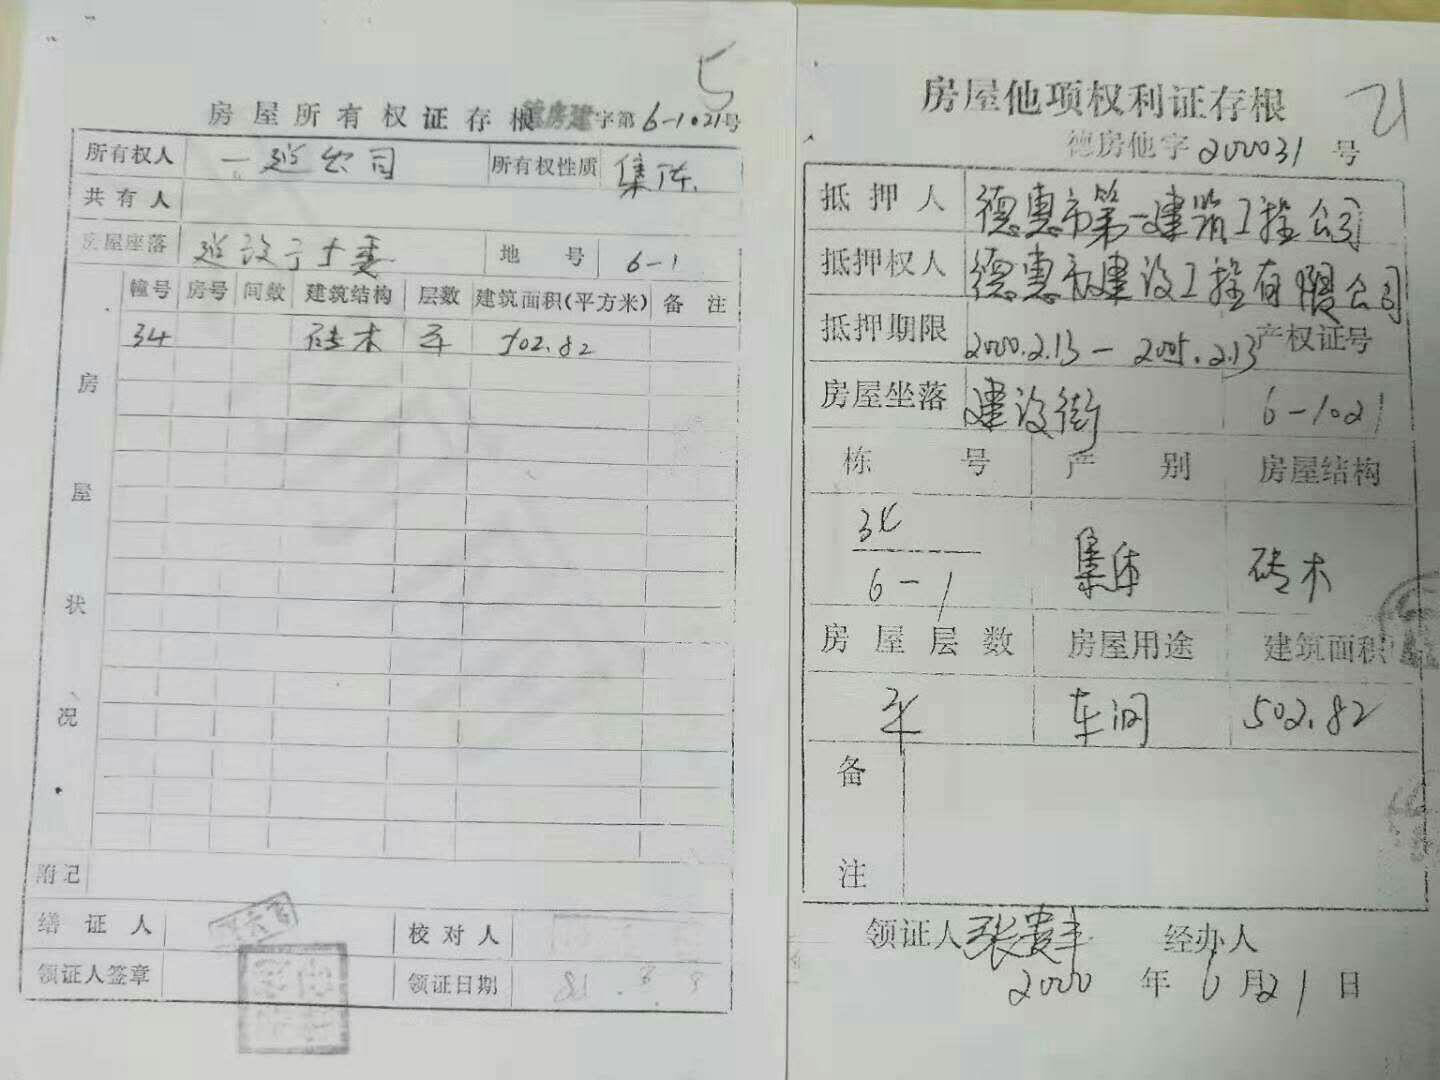 5
房屋所有权证存根德房建字第6-1021号
所有权人 一建公司 所有权性质 集体
共有人
房屋座落 地号 6-1
房屋状况
幢号 房号 间数 建筑结构 层数 建筑面积(平方米) 备注
34 砖木 平 502.82
附记
缮证人 校对人
领证人签章 领证日期
房屋他项权利证存根
21
德房他字200031号
抵押人 德惠市第一建筑工程公司
抵押权人 德惠市建设工程有限公司
抵押期限 2000.2.13-2005.2.13 产权证号
房屋坐落 建设街 6-1021
栋号 产别 房屋结构
34
6-1 集体 砖木
房屋层数 房屋用途 建筑面积
平 车间 502.82
备注
领证人 张贵丰 经办人
2000年6月21日